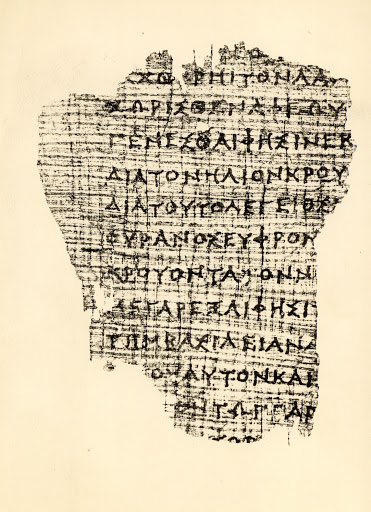 ΧΩΡΗΙΤΟΝΛΑ
ΧΩΡΙΣΘΕΝΑΦΕΩΥ
ΓΕΝΕΣΘΑΙΦΗΣΙΝΕΚ
ΔΙΑΤΟΝΗΛΙΟΝΚΡΟΥ
ΔΙΑΤΟΥΤΟΛΕΓΕΙΟΣ
ΟΥΡΑΝΟΣΕΥΦΡΟΝ
ΚΡΟΥΟΝΤΑΤΟΝΝ
ΜΕΓΑΡΕΞΑΙΦΗΣΙ
ΤΗΜΒΑΣΙΛΕΙΑΝΑ
ΟΥΑΥΤΟΝΚΑΙ
ΩΝΤΩΓΓΑΡ